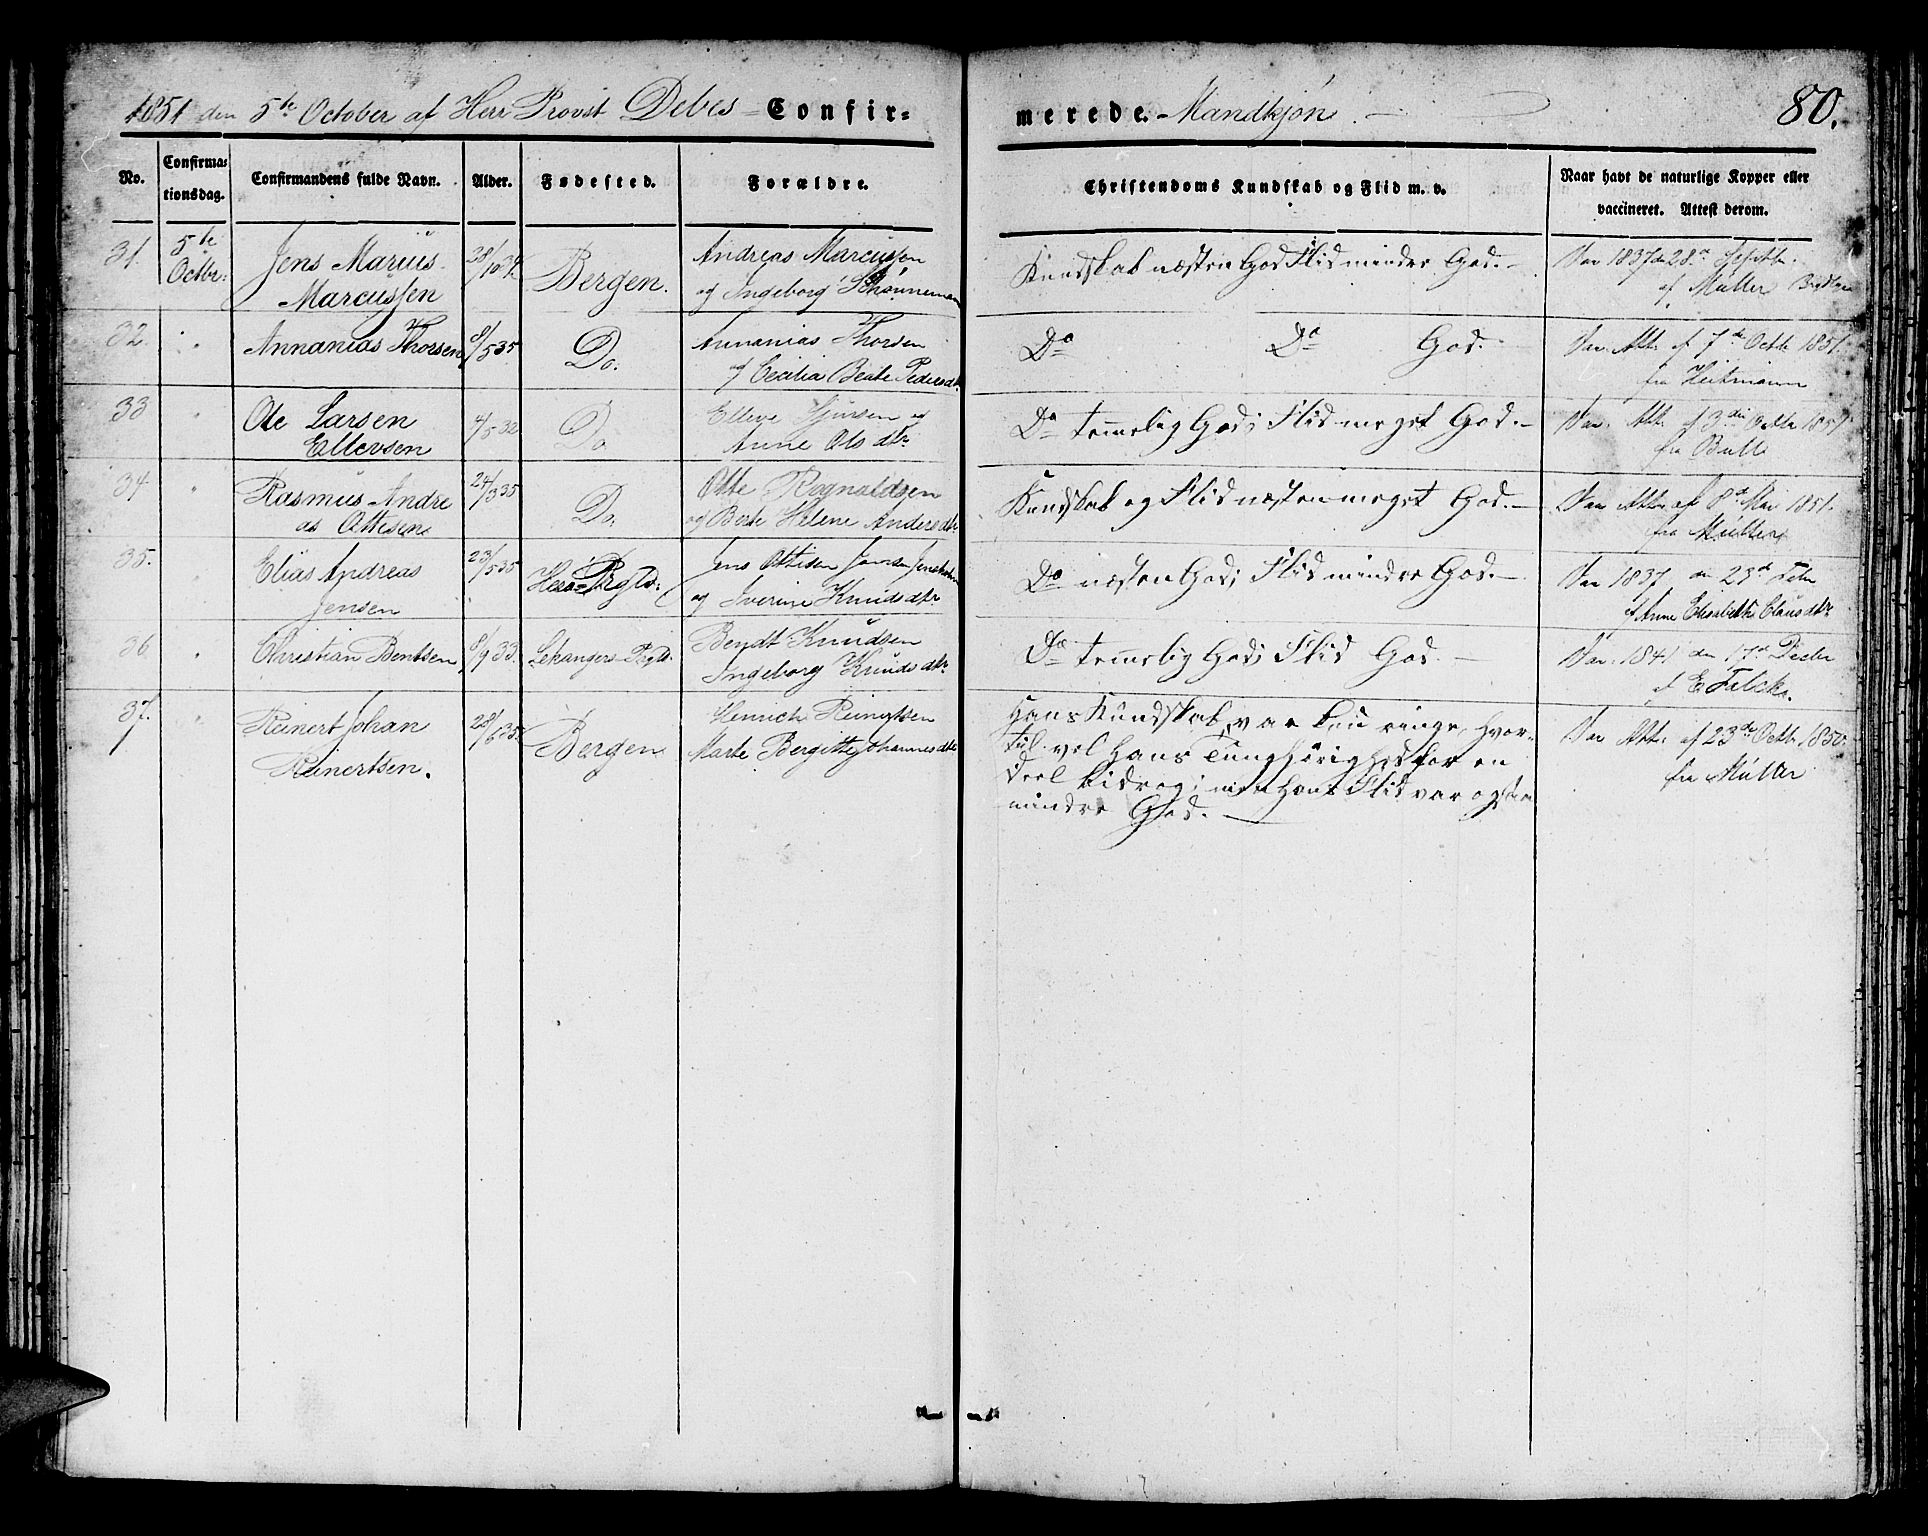 1851 den 5te October af Herr Provst Debes - Confir-
merede. Mandkjøn. -
80.
No.
Confirma-
tionsdag.
Confirmandens fulde Navn.
Alder.
Fødested.
Forældre.
Christendoms Kundskab og Flid m. v.
Naar havt de naturlige Kopper eller
vaccineret. Attest derom.
31.
5te
Octbr:
Jens Marius
Marcussen
28/10 34.
Bergen.
Andreas Marcussen
og Ingeborg
Kundskab næsten God Flid mindre God. -
Vac 1837 d 28de
af Müller
32.
Annanias Thorsen
8/5 35
Do.
Annanias Thorsen
og Cecilia Beate Pedersdtr
Do Do God. -
Vac. Att. af 7de Octbr 1851.
fra Heitmann
33
Ole Larsen
Ellevsen
4/5 32
Do
Elleve Sjursen og
Anne Olsdtr.
Do temmelig God; Flid meget God. -
Vac. Att. af 3die Octbr 1851
fra Bull
34.
Rasmus Andre
as Ottesen
24/3 35
Do.
Otte Rognaldsen
og Berte Helene Andersdtr
Kundskab og Flid næsten meget God. -
Vac Att. af 8de Mai 1851.
fra Müller
35.
Elias Andreas
Jensen
23/5 35
Prgld:
Jens Ottesen
og Iverine Knudsdtr
Do næsten God; Flid mindre God. -
Vac 1837 den 23de Febr
af Anne Elisabeth Clausdtr
36
Christian Bentsen
8/9 33.
Lekangers Prgld.
Bendt Knudsen
Ingeborg Knudsdtr
Do temmelig God; Flid God. -
Vac. 1841 den 17de Decbr
af E Falck.
37.
Reinert Johan
Reinertsen.
28/6 35.
Bergen
Henrich
Marte Bergitte Johannesdtr
Hans Kundskab var kun ringe, hvor-
til vel hans Tunghørighed for en
Deel bidrog; men hans Flid var ogsaa
mindre God. -
Vac Att. af 23de Octbr 1850
fra Müller